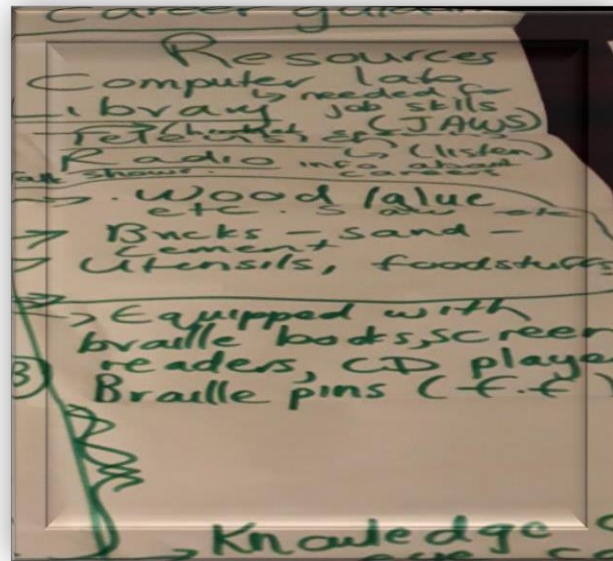 Career guidan
Resources
Computer lab
↳ needed for
Library job skills
(JAWS)
Radio info about ↳ (listen)
talk shows. careers
→ . Wood / glue
etc. saw etc
→ Bricks - sand -
cement
→ Utensils, foodstuffs
→ Equipped with
braille books, screen
③ readers, CD playe
Braille pins (f.f)
→ Knowledge
eye